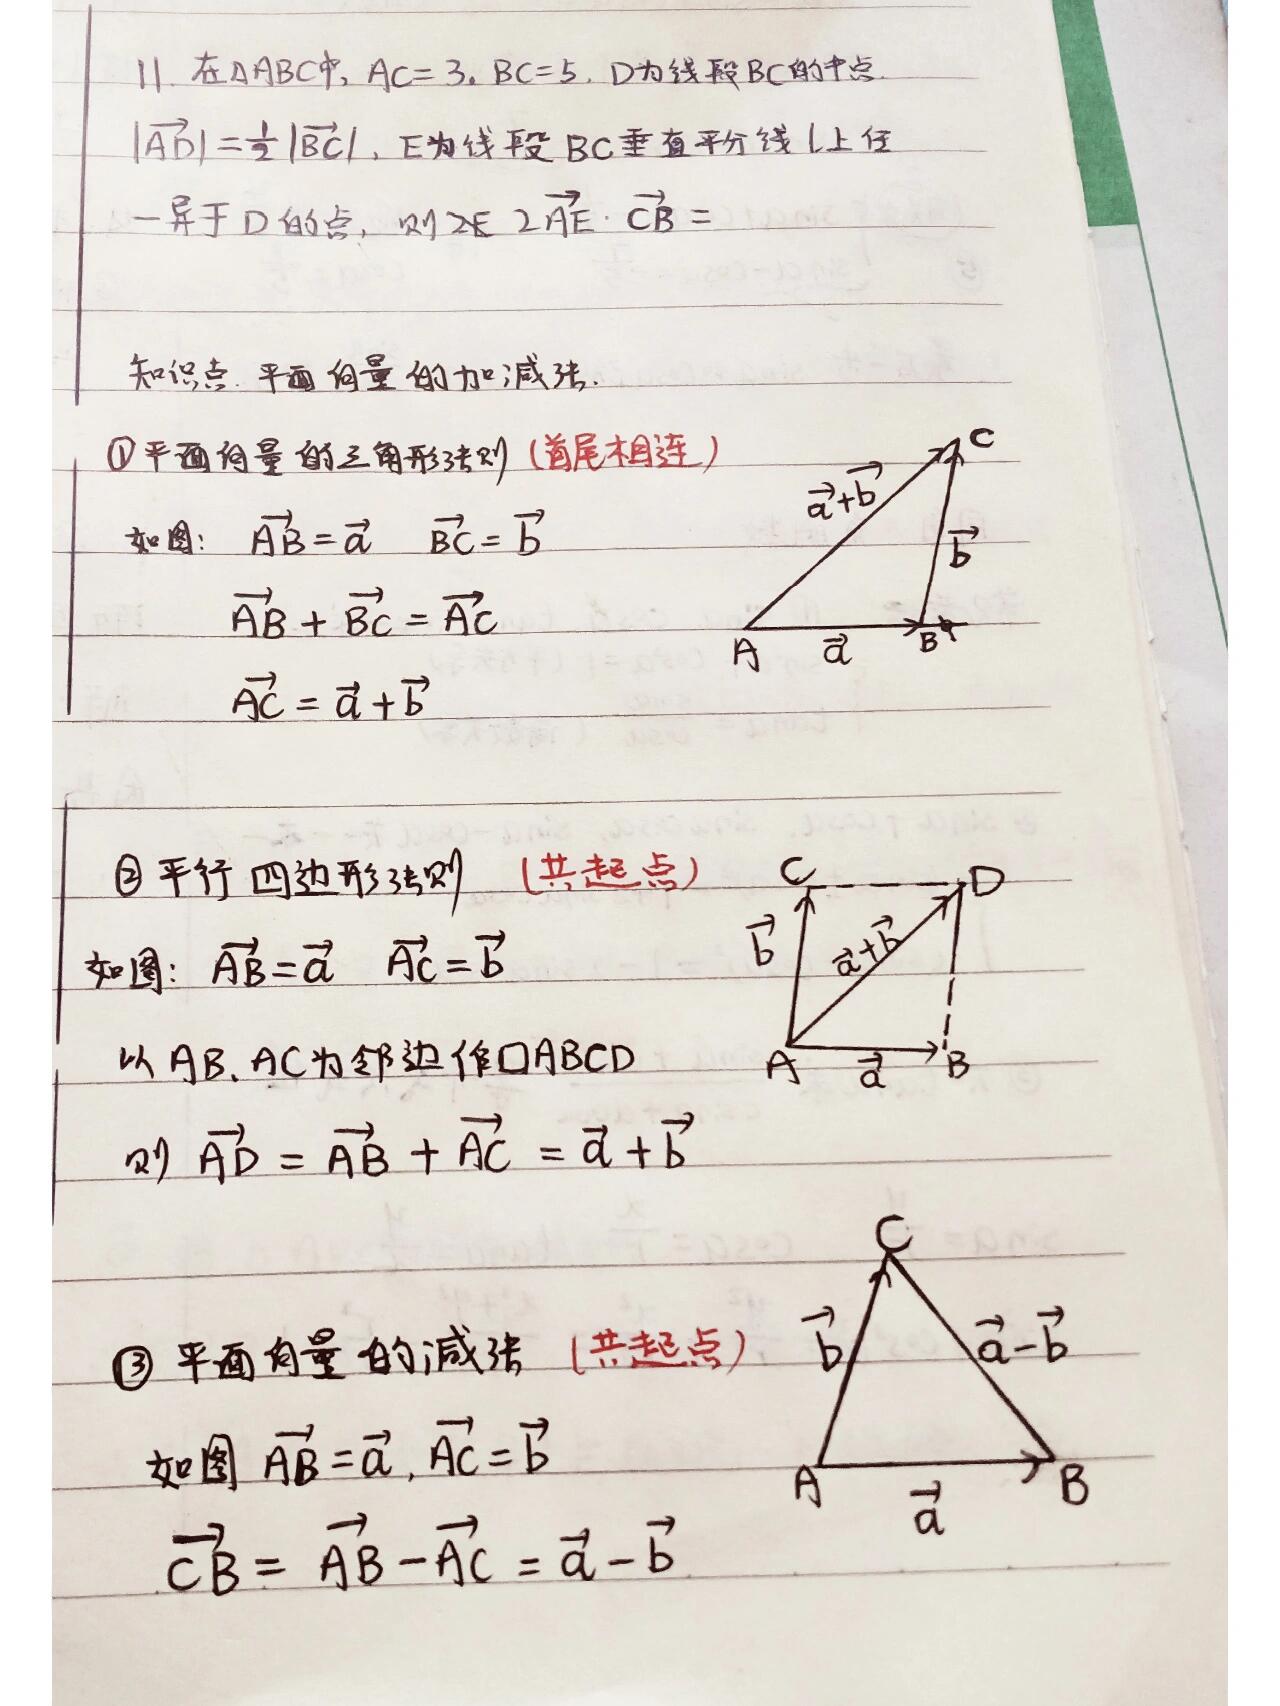 11. 在△ABC中, AC=3. BC=5. D为线段BC的中点.
|AD|=½|BC|, E为线段BC垂直平分线l上任
一异于D的点, 则2E 2AE·CB=
知识点. 平面向量的加减法.
①平面向量的三角形法则(首尾相连)
如图: AB=a BC=b
AB+BC=AC
AC=a+b
C
a+b
b
A
a
B
②平行四边形法则 (共起点)
如图: AB=a AC=b
以AB、AC为邻边作□ABCD
则 AD = AB + AC = a+b
C
D
b
a+b
A
a
B
③平面向量的减法 (共起点)
如图 AB=a, AC=b
CB = AB-AC = a-b
C
b
a-b
A
a
B